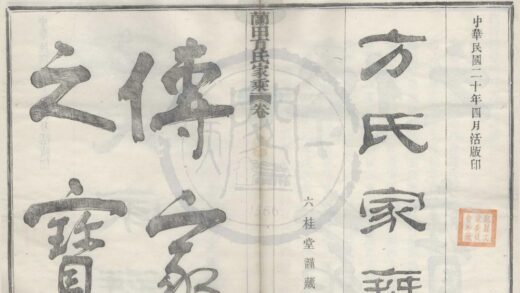 中華民國二十年四月活版印
方氏家乘
六桂堂謹藏
莆田方氏家乘 卷
傳家
之寶